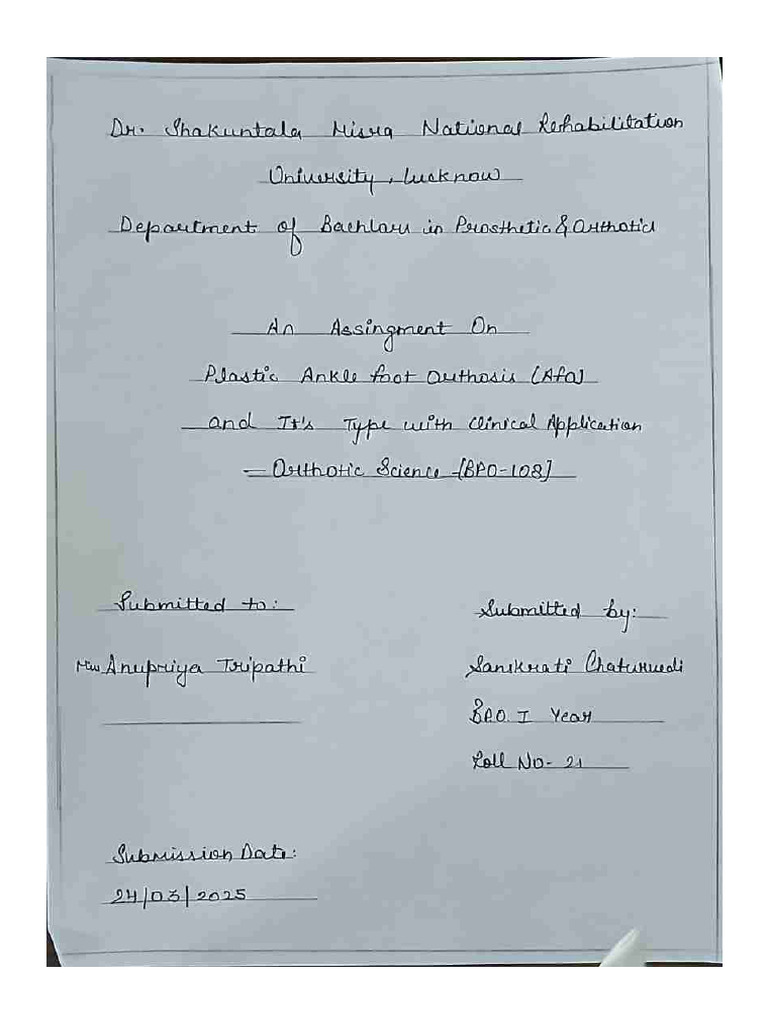 Dr. Shakuntala Misra National Rehabilitation
University, Lucknow
Department of Bachlors in Prosthetic & Orthotics
An Assingment On
Plastic Ankle foot Outhosis (AFO)
and It's Type with Clinical Application
- Orthotic Science [BPO-108]
Submitted to:
Submitted by:
Anupriya Tripathi
Sanskrati Chaturvedi
BPO. I Year
Roll No- 21
Submission Date:
24/03/2025